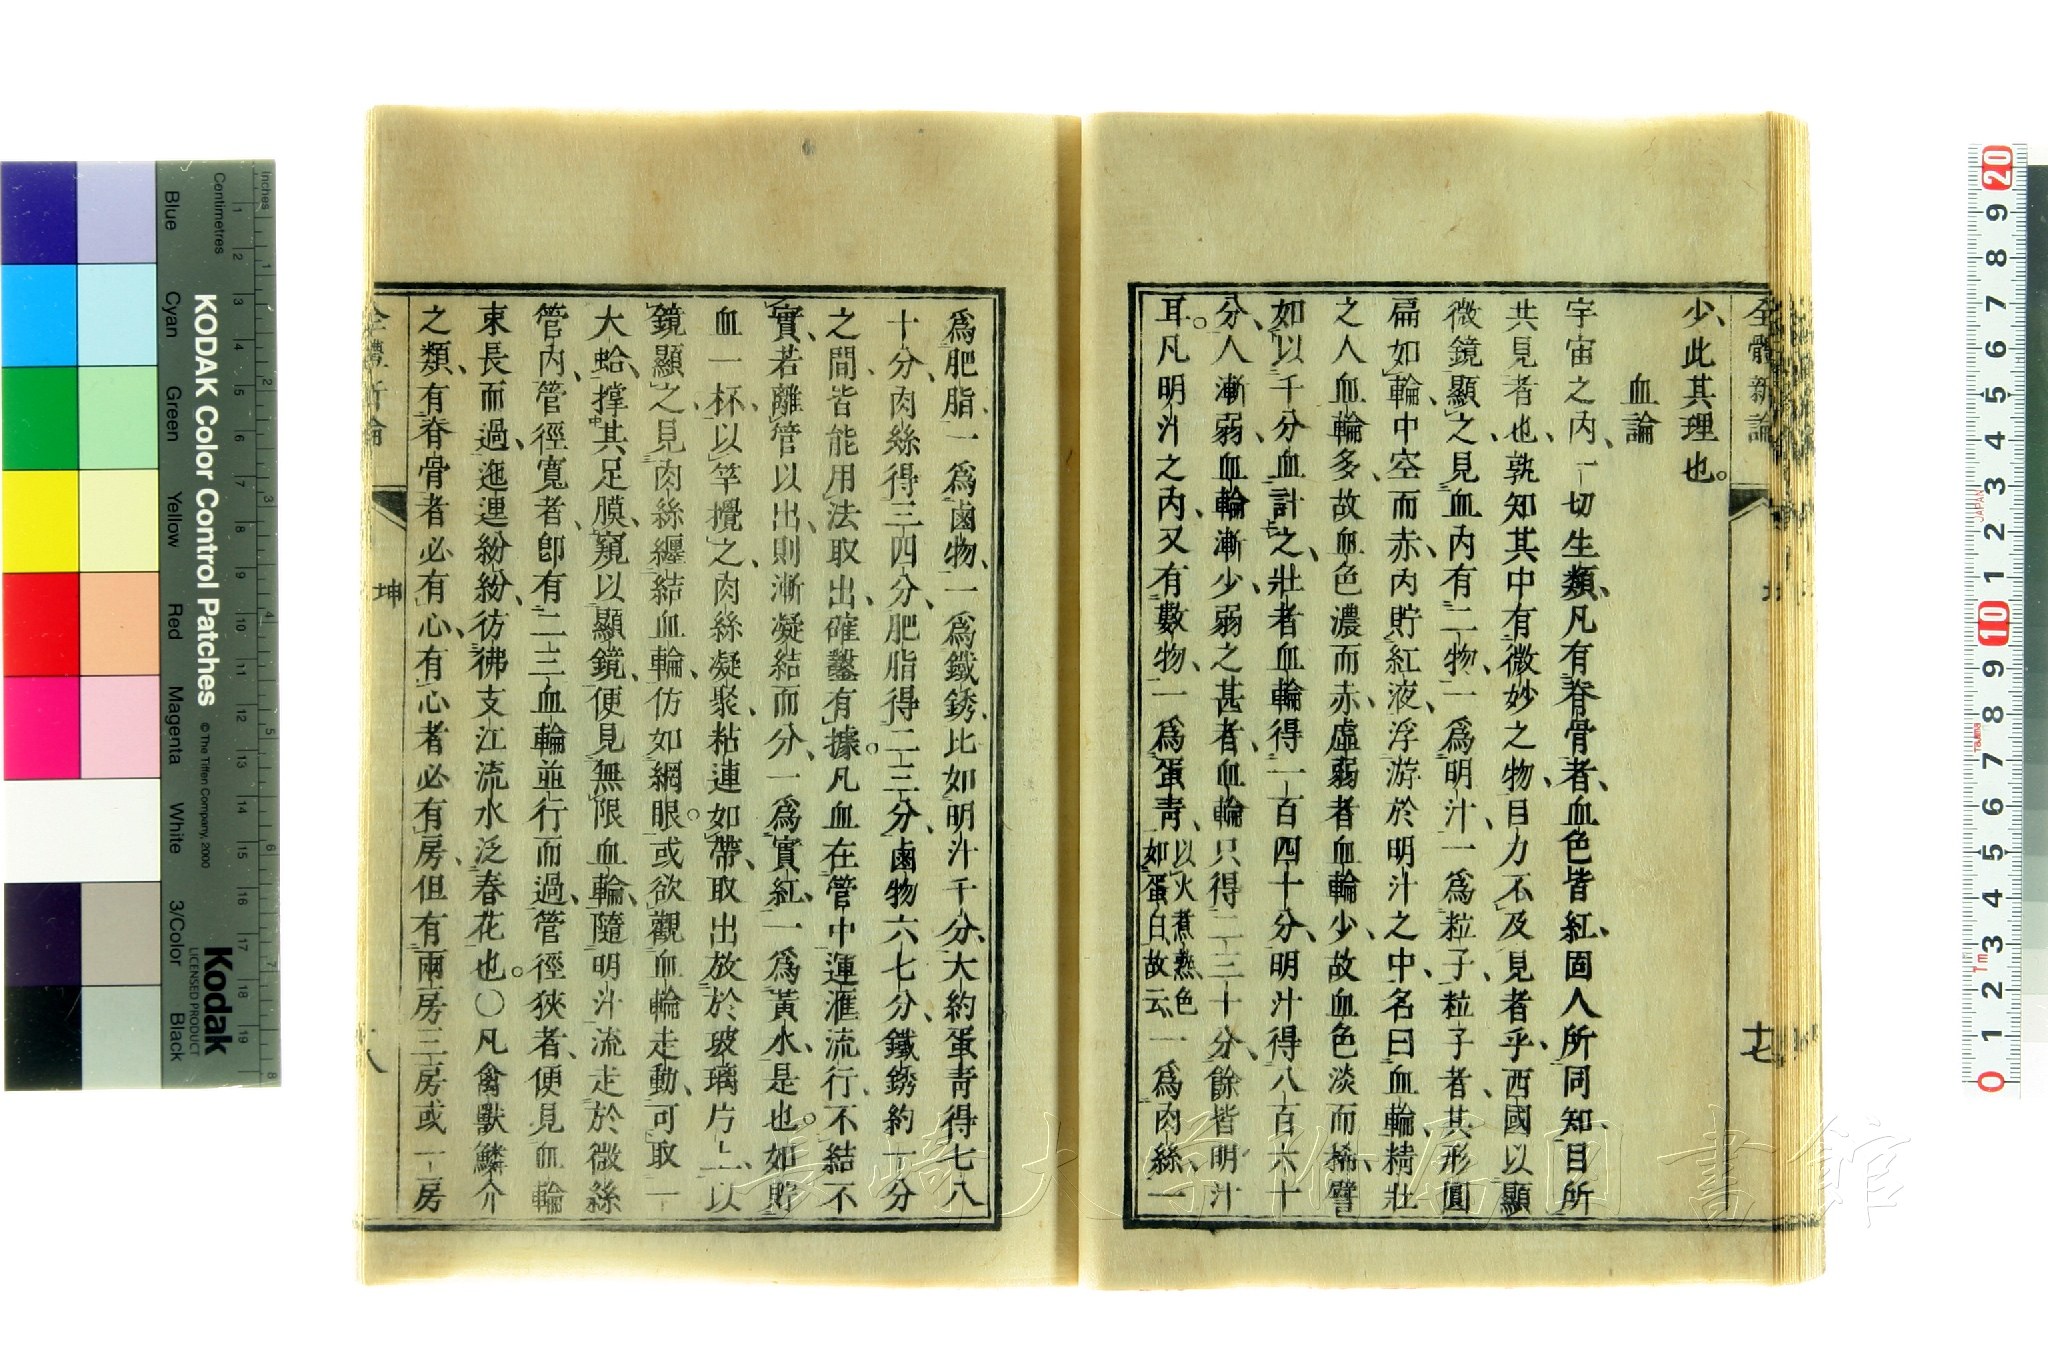 全體新論
十七
少、此其理也。
血論
宇宙之內、一切生類、凡有脊骨者、血色皆紅、固人所同知、目所
共見者也、孰知其中有微妙之物、目力不及見者乎、西國以顯
微鏡顯之、見血內有二物、一爲明汁、一爲粒子、粒子者、其形圓
扁如輪、中空而赤、內貯紅液、浮游於明汁之中、名曰血輪、精壯
之人血輪多、故血色濃而赤、虛弱者血輪少、故血色淡而稀、譬
如以千分血計之、壯者血輪得一百四十分、明汁得八百六十
分、人漸弱、血輪漸少、弱之甚者、血輪只得二三十分、餘皆明汁
耳。凡明汁之內、又有數物、一爲蛋青、以火煮熟色如蛋白故云一爲肉絲、一
爲肥脂、一爲鹵物、一爲鐵銹、比如明汁千分、大約蛋青得七八
十分、肉絲得三四分、肥脂得二三分、鹵物六七分、鐵銹約一分
之間、皆能用法取出、確鑿有據。凡血在管中運滙流行、不結不
實、若離管以出、則漸凝結而分、一爲實紅、一爲黃水、是也。如貯
血一杯、以竿攪之、肉絲凝聚、粘連如帶、取出放於玻璃片上、以
鏡顯之、見肉絲纏結血輪、仿如網眼。或欲觀血輪走動、可取一
大蛤、撑其足膜、窺以顯鏡、便見無限血輪、隨明汁流走於微絲
管內、管徑寬者、卽有二三血輪並行而過、管徑狹者、便見血輪
束長而過、迤邐紛紛、彷彿支江流水泛春花也。〇凡禽獸鱗介
之類、有脊骨者必有心、有心者必有房、但有兩房三房或一房
全體新論
坤
八
KODAK Color Control Patches
© The Tiffen Company, 2000
Kodak
LICENSED PRODUCT
Inches
Centimetres
Blue
Cyan
Green
Yellow
Red
Magenta
White
3/Color
Black
長崎大学附属図書館
JAPAN